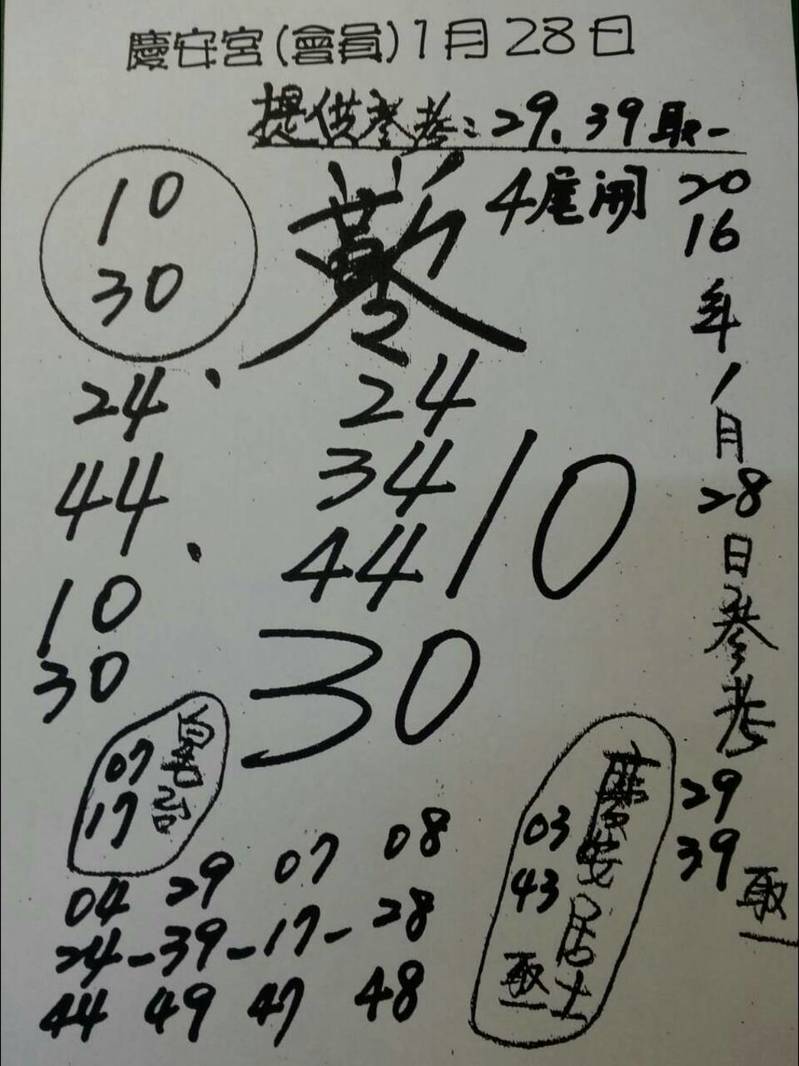 慶安宮(會員)1月28日
提供參考:29、39取一
4尾開
10
30
24
44
10
30
24
34
44
10
30
2016年1月28日參考
29
39
取一
07
17
慶安居士
03
43
取一
04 29 07 08
24-39-17-28
44 49 47 48